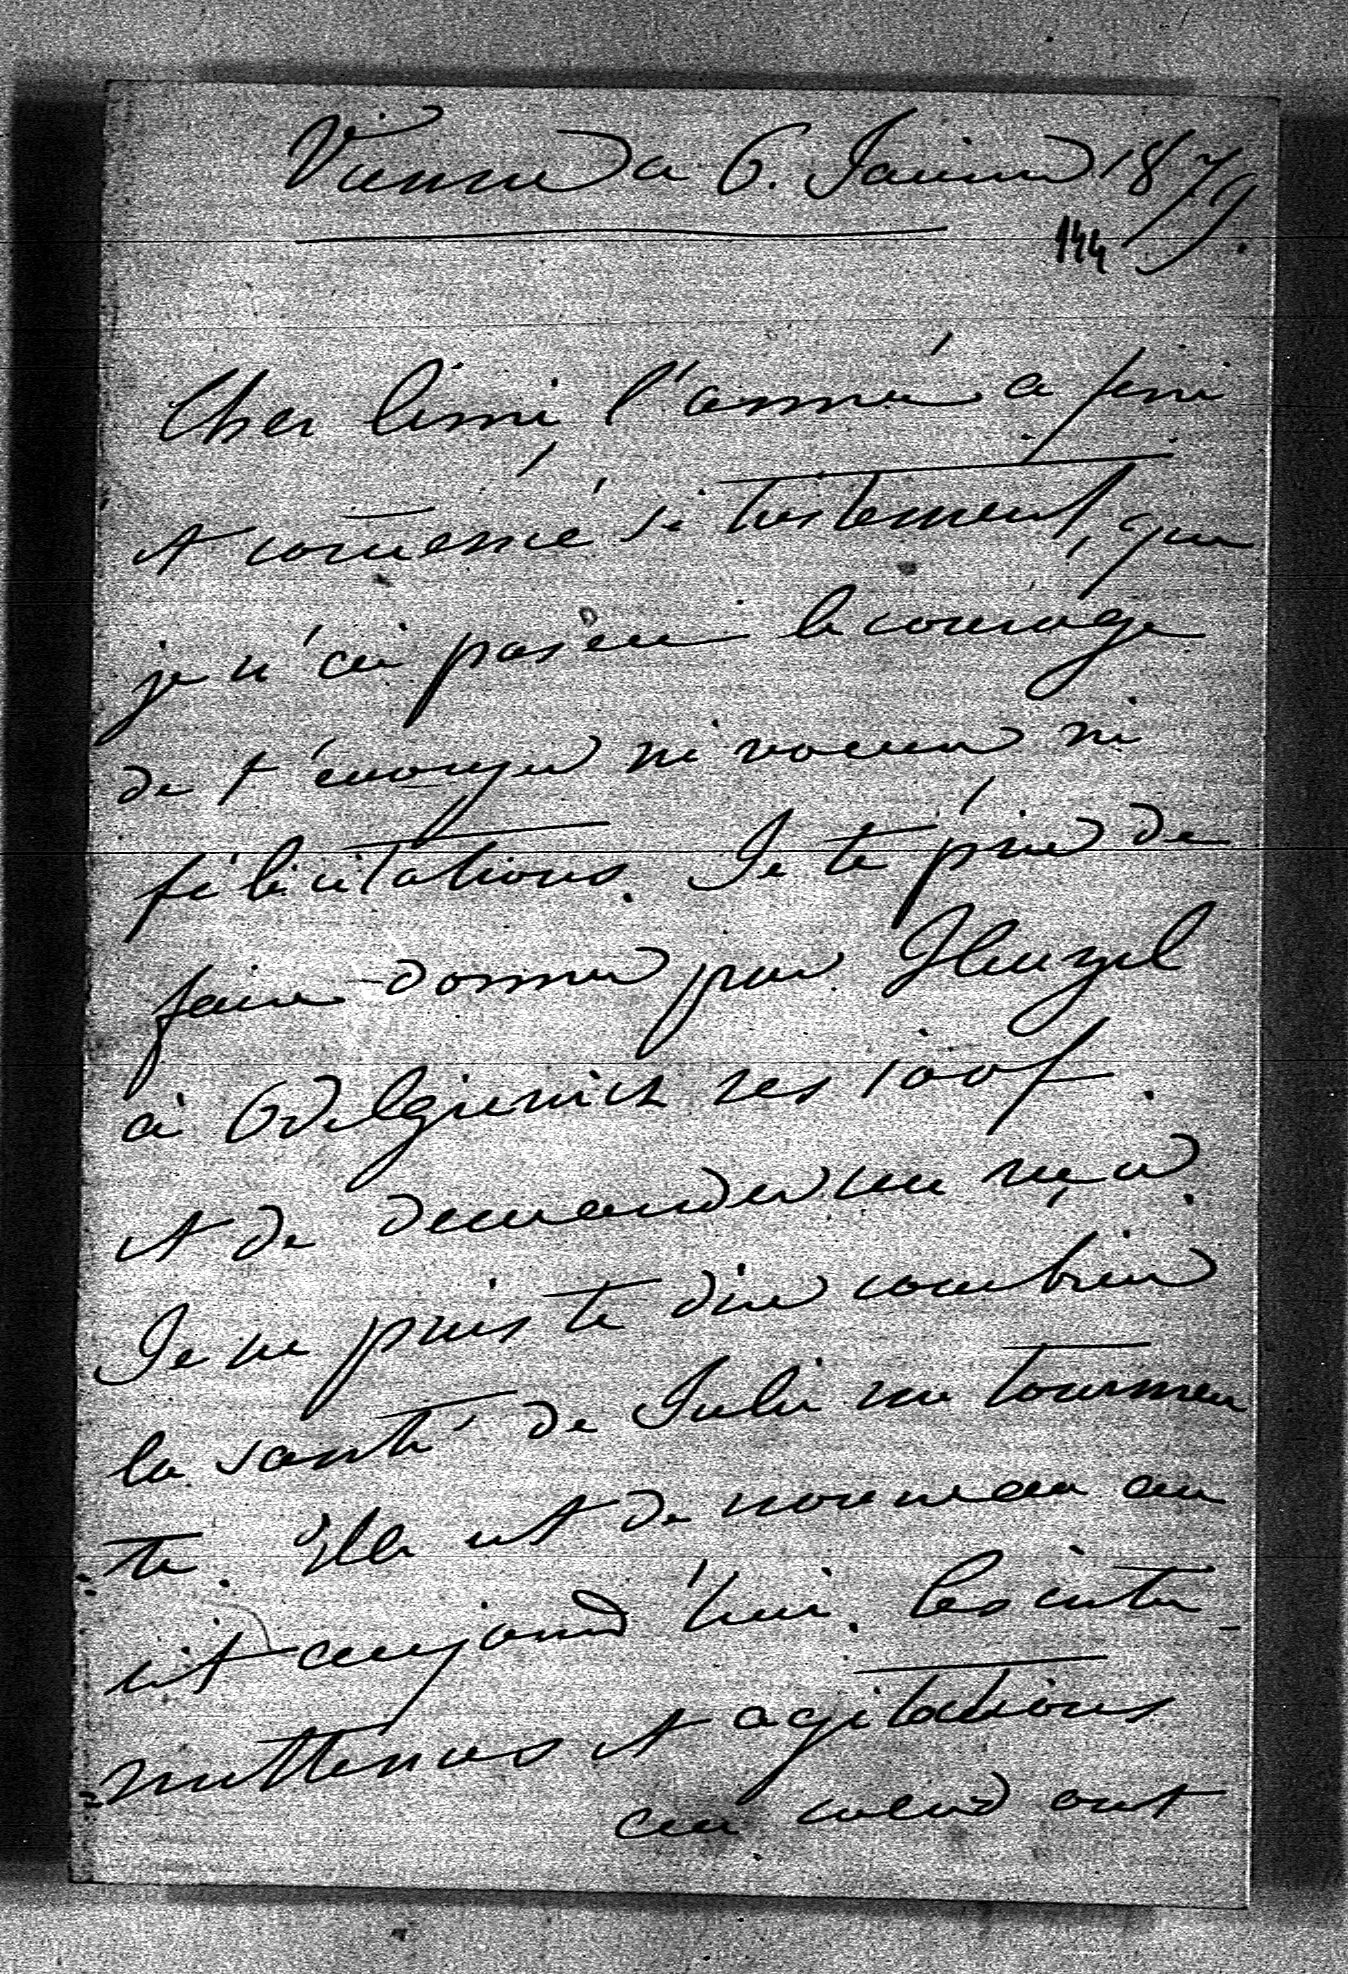 Vienne a 6. Janvier 1879.
144
Cher Cimi, l'année a fini
et comencé si tristement, que
je n'ai pas eu le courage
de t'envoyer ni voeux ni
félicitations. Je te prie de
faire donner par
à ces 100 f.
et de demander un reçu.
Je ne puis te dire combien
la santé de Julie me tourmen
te. Elle est de nouveau au
lit aujourd'hui. Les inter-
mittences et agitations
au coeur ont